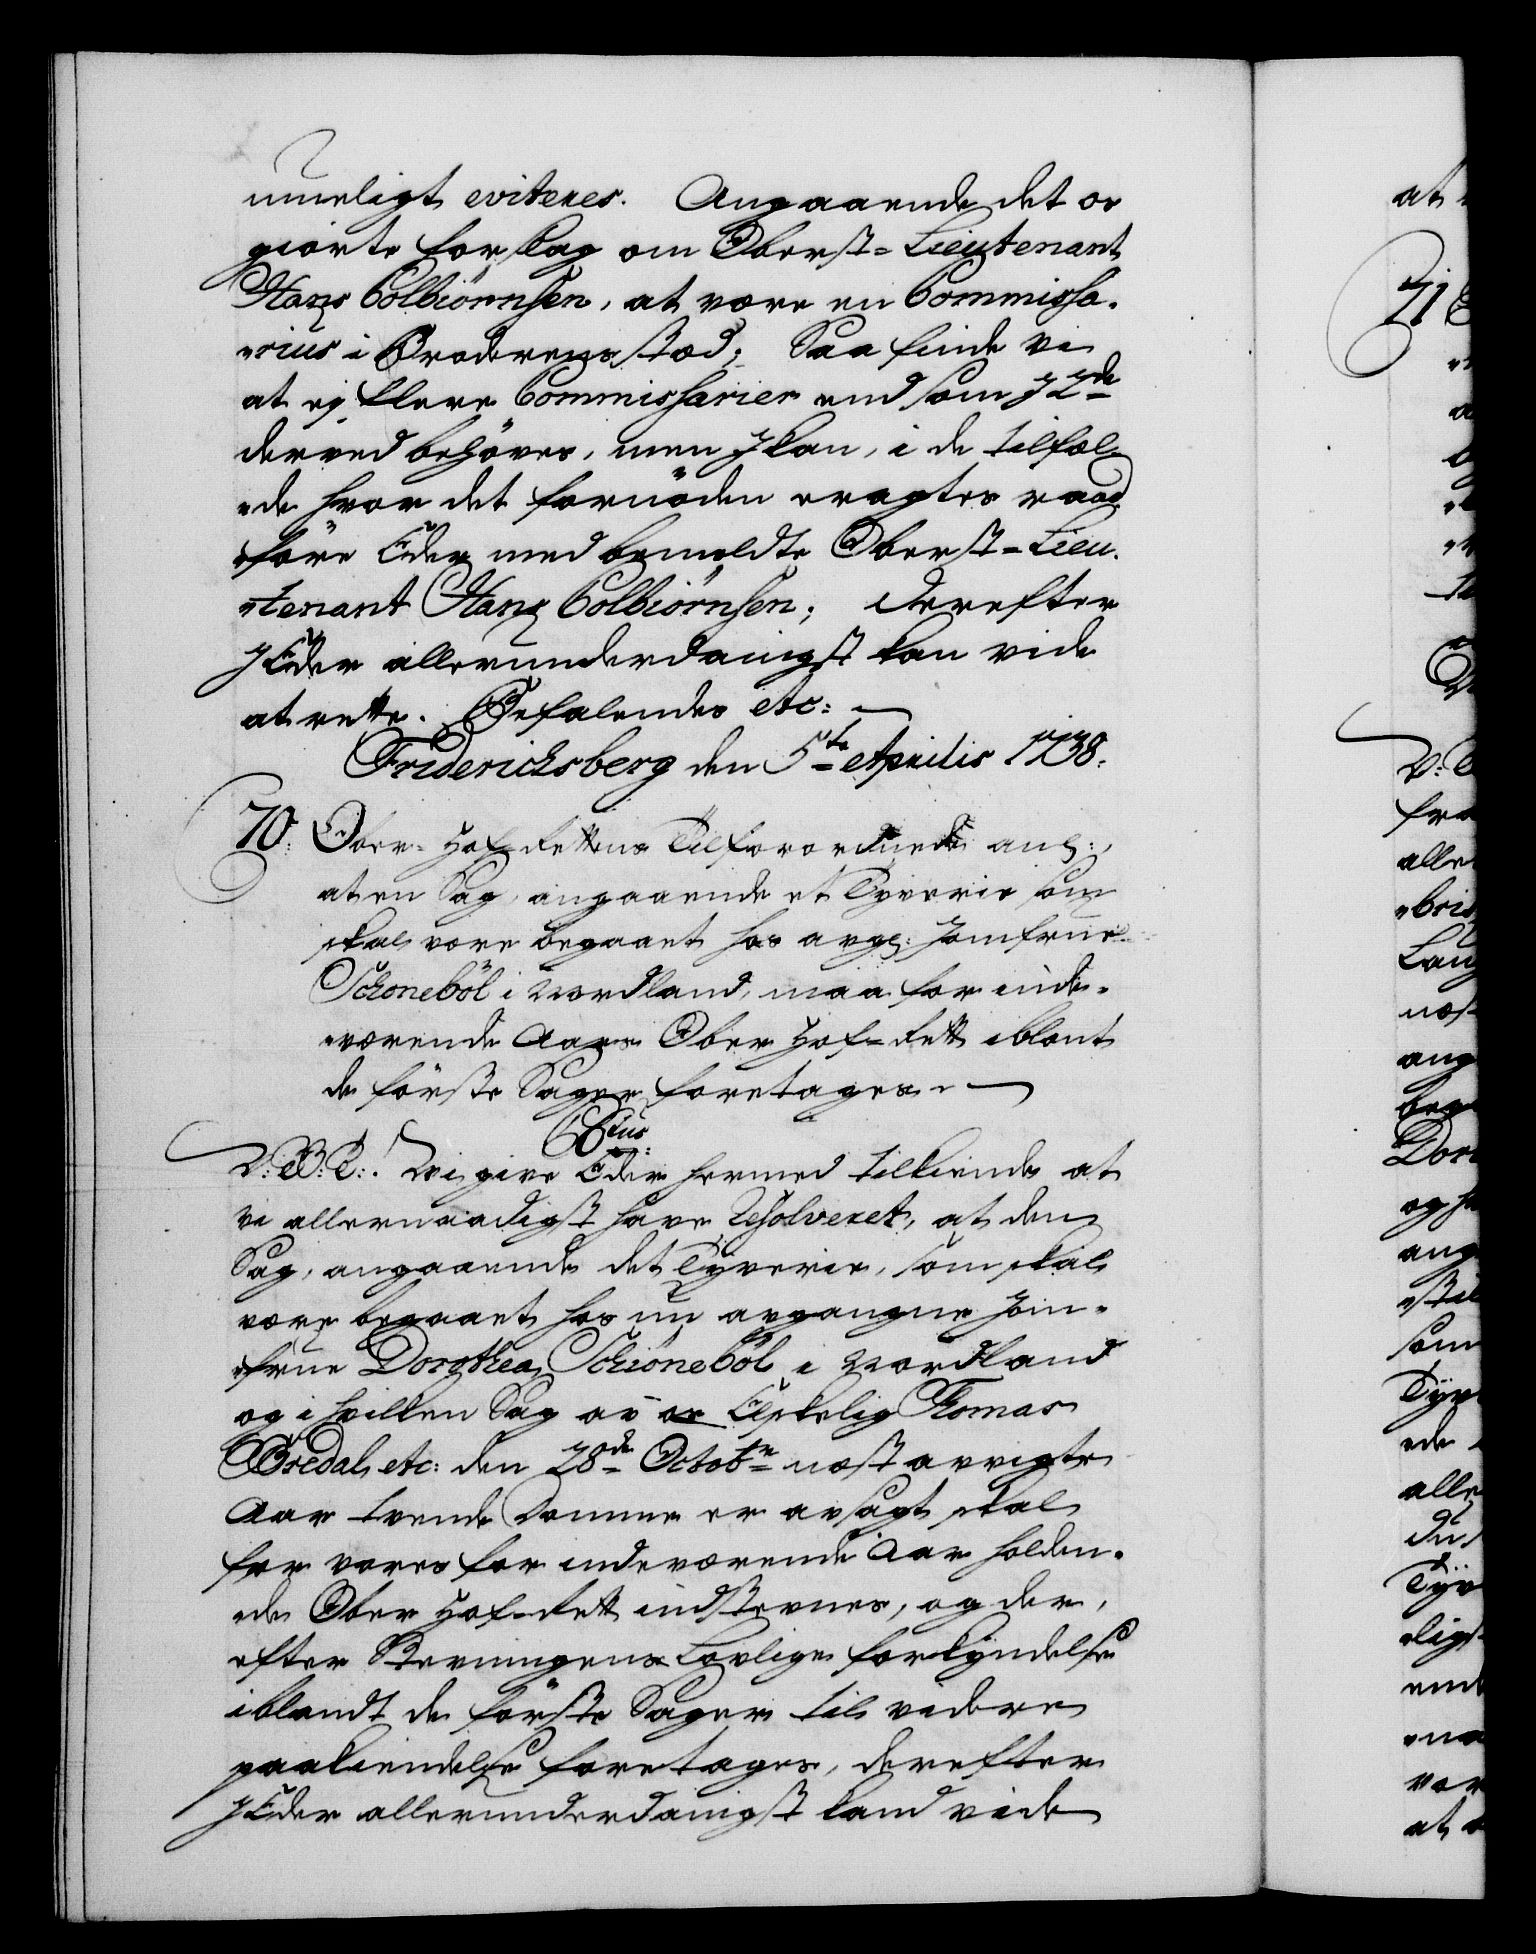 mueligt eviteres. Angaaende det os
giorte forslag om Oberst-Lieutenant
Hans Colbiörnsen, at være en Commissa-
rius i Broderens stæd; Saa finde vi
at ej flere Commissarier end som I 2de
derved behöves, men I kan, i de tilfæl-
de hvor det fornöden eragtes raad-
före Eder med bemeldte Oberst-Lieu-
tenant Hans Colbiörnsen; derefter
I Eder allerunderdanigst kan vide
at rette. Befalendes etc:
Friderichsberg den 5te Aprilis 1738.
70. Ober-Hof-Rettens Tilforordnede anl:,
at en Sag, angaaende et Tyverie som
skal være begaaet hos avgl: Jomfrue
Schoneböl i Nordland, maa for inde-
værende Aars Ober Hof-Rett iblant
de förste Sager foretages.
C6tus.
V: G: T:. Vi give Eder hermed tilkiende at
vi allernaadigst have Resolveret, at den
Sag, angaaende det Tyverie, som skal
være begaaet hos nu avgangne Jom-
frue Dorothea Schiöneböl i Nordland
og i hvilken Sag av os Elskelig Thomas
Bredal etc: den 28de Octobr næst avvigte
Aar tvende Domme er avsagt skal
for vores for indeværende Aar holden-
de Ober Hof-Rett indstevnes, og der,
efter Stevningens Lovlige forkyndelse
iblandt de förste Sager til videre
paakiendelse foretages, derefter
I Eder allerunderdanigst kand vide